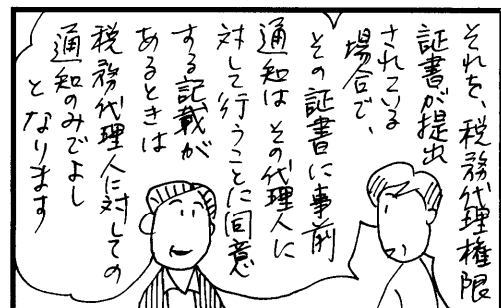 それを、税務代理権限
証書が提出
されている
場合で、
その証書に事前
通知は その代理人に
対して行うことに同意
する記載が
あるときは
税務代理人に対しての
通知のみでよし
となります